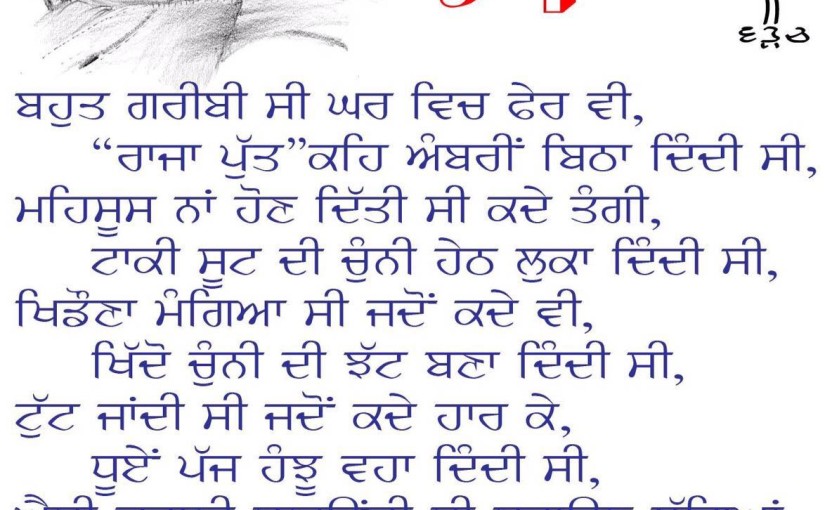 ਵੜੈਚ
ਬਹੁਤ ਗਰੀਬੀ ਸੀ ਘਰ ਵਿਚ ਫੇਰ ਵੀ,
“ਰਾਜਾ ਪੁੱਤ”ਕਹਿ ਅੰਬਰੀਂ ਬਿਠਾ ਦਿੰਦੀ ਸੀ,
ਮਹਿਸੂਸ ਨਾਂ ਹੋਣ ਦਿੱਤੀ ਸੀ ਕਦੇ ਤੰਗੀ,
ਟਾਕੀ ਸੂਟ ਦੀ ਚੁੰਨੀ ਹੇਠ ਲੁਕਾ ਦਿੰਦੀ ਸੀ,
ਖਿਡੌਣਾ ਮੰਗਿਆ ਸੀ ਜਦੋਂ ਕਦੇ ਵੀ,
ਖਿੱਦੋ ਚੁੰਨੀ ਦੀ ਝੱਟ ਬਣਾ ਦਿੰਦੀ ਸੀ,
ਟੁੱਟ ਜਾਂਦੀ ਸੀ ਜਦੋਂ ਕਦੇ ਹਾਰ ਕੇ,
ਧੂਏਂ ਪੱਜ ਹੰਝੂ ਵਹਾ ਦਿੰਦੀ ਸੀ,